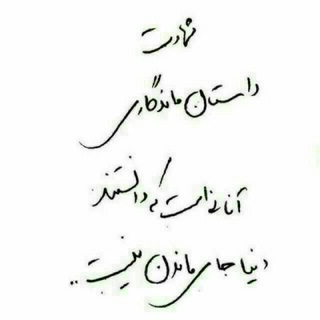 شهادت
داستان ماندگاری
آنانی است که دانستند
دنیا جای ماندن نیست..